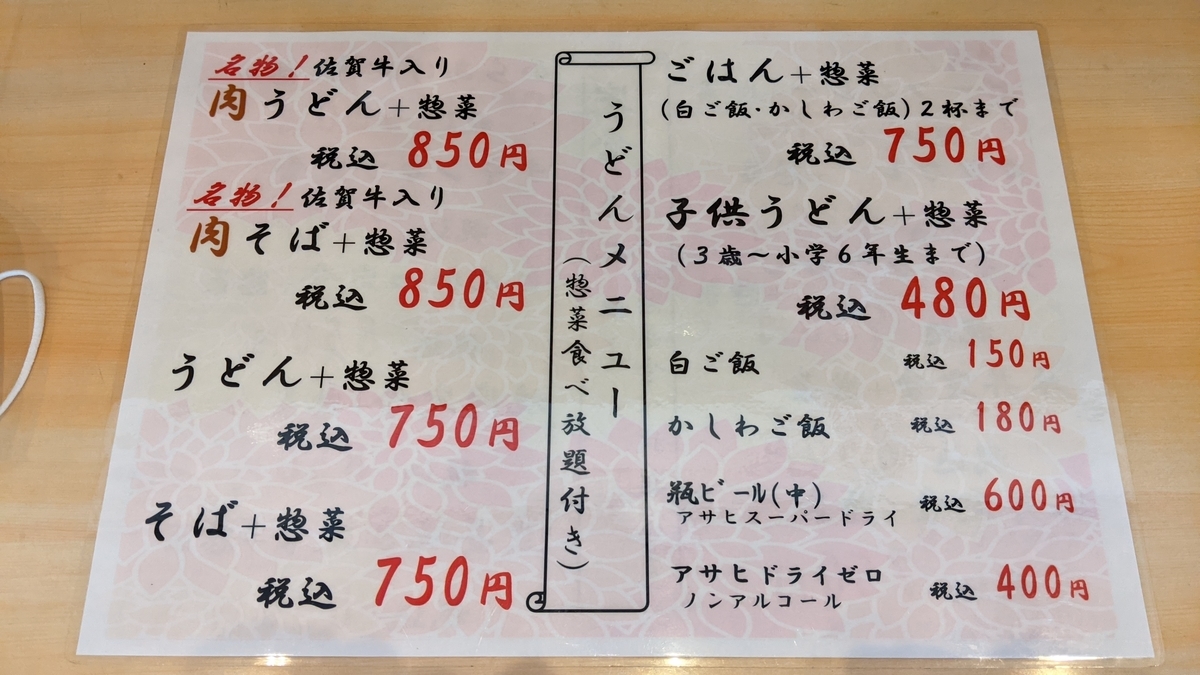 うどんメニュー
(惣菜食べ放題付き)
名物!佐賀牛入り
肉うどん+惣菜
税込 850円
名物!佐賀牛入り
肉そば+惣菜
税込 850円
うどん+惣菜
税込 750円
そば+惣菜
税込 750円
ごはん+惣菜
(白ご飯・かしわご飯)2杯まで
税込 750円
子供うどん+惣菜
(3歳〜小学6年生まで)
税込 480円
白ご飯 税込 150円
かしわご飯 税込 180円
瓶ビール(中) 税込 600円
アサヒスーパードライ
アサヒドライゼロ 税込 400円
ノンアルコール